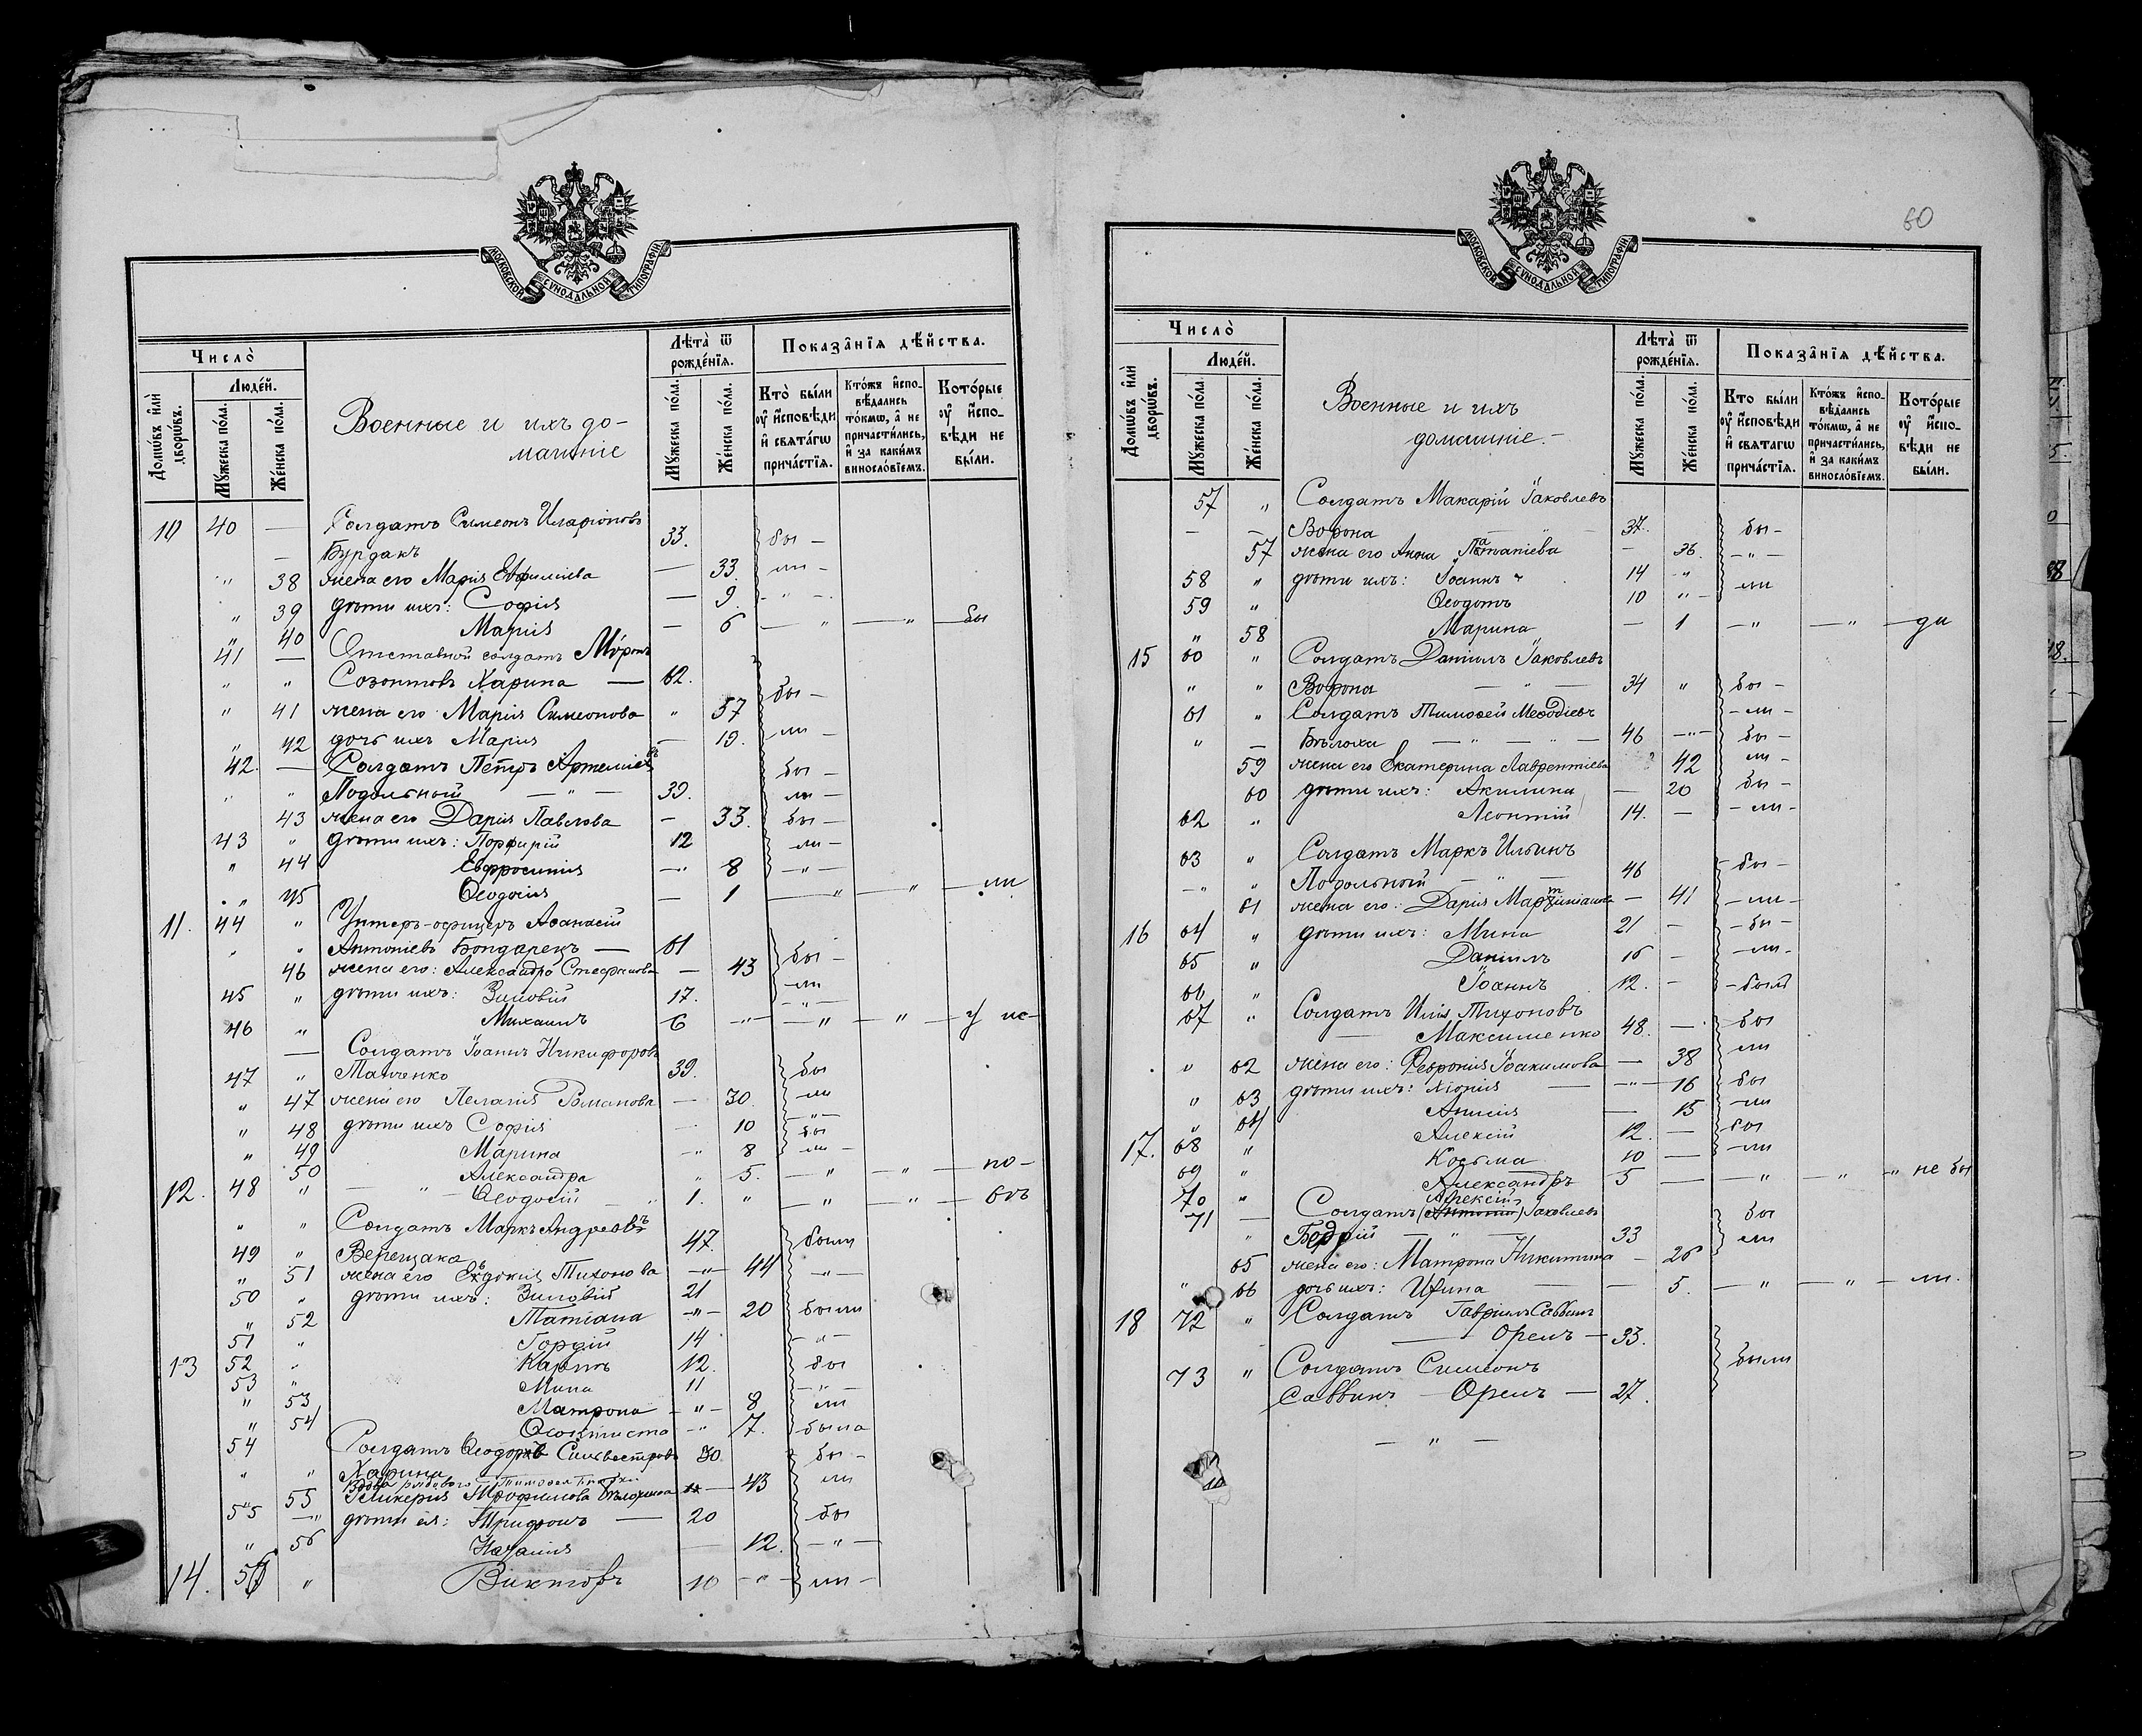 МОСКОВСКОЙ СѴНОДАЛЬНОЙ ТИПОГРАФІИ
Число̀
Домѡ́въ и҆лѝ дворѡ́въ.
Люде́й.
Мꙋ́жеска по́ла.
Же́нска по́ла.
Военные и ихъ до-
машніе
Лѣ́та ѿ рожде́нїѧ.
Мꙋ́жеска по́ла.
Же́нска по́ла.
Показа̂нїѧ дѣ́йства.
Кто̀ бы́ли оу҆ и҆сповѣ́ди и҆ свѧта́гѡ прича́стїѧ.
Кто́жъ и҆спо-вѣ́дались то́кмѡ, а҆ не причасти́лись, и҆ за каки́мъ винослові́емъ.
Кото́рые оу҆ и҆спо-вѣ́ди не бы́ли.
10 40 — Солдатъ Симеонъ Иларіоновъ
— Бурдакъ 33. бы -
" 38 жена его Марія Евфиміева — 33. ли -
" 39 дѣти ихъ: Софія — 9. - " -
" 40 Марія — 6 — " — " — бы
41 — Отставной солдатъ Миронъ
" " Созонтовъ Харина — 62. бы -
" 41 жена его Марія Симеонова " 57
" 42 дочь ихъ Марія — 19. ли -
42. — Солдатъ Петръ Артеміевъ бы -
" " Подольный — " — 39. ли -
43 жена его Дарія Павлова — 33. бы -
43 " дѣти ихъ: Порфирій 12 ли -
" 44 Евфросинія — 8 - " -
" 45 Ѳеодосія — 1 — " — " — ли
11. 44 " Унтеръ-офицеръ Аѳанасій
" " Антоніевъ Бондарецъ — 61 бы -
46 жена его: Александра Стефанова — 43
45 " дѣти ихъ: Зиновій 17. ли - " -
46 " Михаилъ 6 - " - — " — " — у ис-
— Солдатъ Іоаннъ Никифоровъ
47 " Танченко 39. бы
" 47 жена его Пелагія Романова — 30. ли
" 48 дѣти ихъ Софія — 10 - " - бы
" 49 Марина - " 8 ли -
50 Александра " 5. — " — " — по-
12. 48 " — " — Ѳеодосій 1. " — " — " — вѣ
" " Солдатъ Маркъ Андреевъ
49 " Верещака 47. были
" 51 жена его Евдокія Тихонова - " - 44 - " -
50 " дѣти ихъ: Зиновій 21
" 52 Татіана - " - 20 были
51 " Гордій 14 - " -
13 52 " Карпъ 12. бы
53 " Мина 11 - " -
" 53 Матрона - " - 8 ли
" 54 Ѳеоктиста - " 7. была
54 Солдатъ Ѳеодоръ Сильвестровъ 30 бы -
" " Харина
Вдова рядового
" 55 Гликерія Трофимова — 43 ли
55 — " дѣти ея: Трифонъ — 20 бы
" 56 Наталія — 12. - " -
14. 56 " Викторъ 10 - " - ли -
60
МОСКОВСКОЙ СѴНОДАЛЬНОЙ ТИПОГРАФІИ
Число̀
Домѡ́въ и҆лѝ дворѡ́въ.
Люде́й.
Мꙋ́жеска по́ла.
Же́нска по́ла.
Военные и ихъ
домашніе. -
Лѣ́та ѿ рожде́нїѧ.
Мꙋ́жеска по́ла.
Же́нска по́ла.
Показа̂нїѧ дѣ́йства.
Кто̀ бы́ли оу҆ и҆сповѣ́ди и҆ свѧта́гѡ прича́стїѧ.
Кто́жъ и҆спо-вѣ́дались то́кмѡ, а҆ не причасти́лись, и҆ за каки́мъ винослові́емъ.
Кото́рые оу҆ и҆спо-вѣ́ди не бы́ли.
57 " Солдатъ Макарій Іаковлевъ
— — Ворона — " — 37. бы -
57 жена его Анна — 36. - " -
58 " дѣти ихъ: Іоаннъ 14 - " ли
59 " Ѳеодотъ 10 " -
" 58 Марина — 1 — " — " — ди
15 60 " Солдатъ Даніилъ Іаковлевъ
" " Ворона — " — 34 " бы -
61 " Солдатъ Тимоѳей Меѳодіевъ - ли -
" — Бѣлоха — " — " — 46 - " - бы -
59 жена его Екатерина Лаврентіева 42 ли -
60 дѣти ихъ: Акилина — 20 бы -
62 " Леонтій 14. — - ли -
63 " Солдатъ Маркъ Ильинъ
- " " Подольный — " — 46 бы -
61 жена его: Дарія Мартиніанова — 41 - ли -
16 64 " дѣти ихъ: Мина 21 - - бы -
65 " Даніилъ 16 - - ли -
66 " Іоаннъ 12. - - былъ
67 " Солдатъ Илія Тихоновъ
— Максименко 48. — бы
" 62 жена его: Ѳевронія Іоакимова — 38 ли
" 63 дѣти ихъ: Хіонія — - " - 16 бы
" 64 Анисія — 15 - ли
17. 68 " Алексій 12. — бы
69 " Косьма 10 — - ли
70 " Александръ 5 — — " — " - " не бы
71 — Солдатъ (Антоній) Алексій Іаковлевъ бы
" Бедрій — " — 33 ли
65 жена его: Матрона Никитина — 26
" 66 дочь ихъ: Ирина — — 5. — " — " — ли.
18 72 " Солдатъ Гавріилъ Саввинъ
— Орелъ — 33.
73 " Солдатъ Симеонъ были
Саввинъ — Орелъ — 27.
— " —